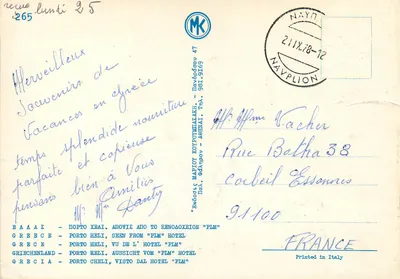 reçue lundi 25
265
MK
ΝΑΥΠ
21 IX.78-12
NAVPLION
Merveilleux
Souvenirs de
Vacances en Grèce
temps splendide nourriture
parfaite et copieuse
pensons bien à Vous
Amitiés
Mr Mme
Mr Mme Vacher
Rue Botha 38
Corbeil Essonnes
91100
FRANCE
Printed in Italy
ΕΛΛΑΣ - ΠΟΡΤΟ ΧΕΛΙ, ΑΠΟΨΙΣ ΑΠΟ ΤΟ ΞΕΝΟΔΟΧΕΙΟΝ "PLM"
GREECE - PORTO HELI, SEEN FROM "PLM" HOTEL
GRECE - PORTO HELI, VU DE L' HOTEL "PLM"
GRIECHENLAND - PORTO HELI, AUSSICHT VOM "PLM" HOTEL
GRECIA - PORTO CHELI, VISTO DAL HOTEL "PLM"